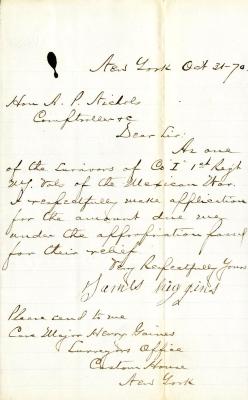 New York Oct 21-70
Hon A. P. Nichols
Comptroller &c
Dear Sir:
As one
of the Survivors of Co "I" 1st Regt
N.Y. Vols of the Mexican War.
I respectfully make application
for the amount due me
under the appropriation passed
for their relief
Very Respectfully Yours
James Higgins
Please send to me
Care Major Henry Gaines
Surveyors Office
Custom House
New York